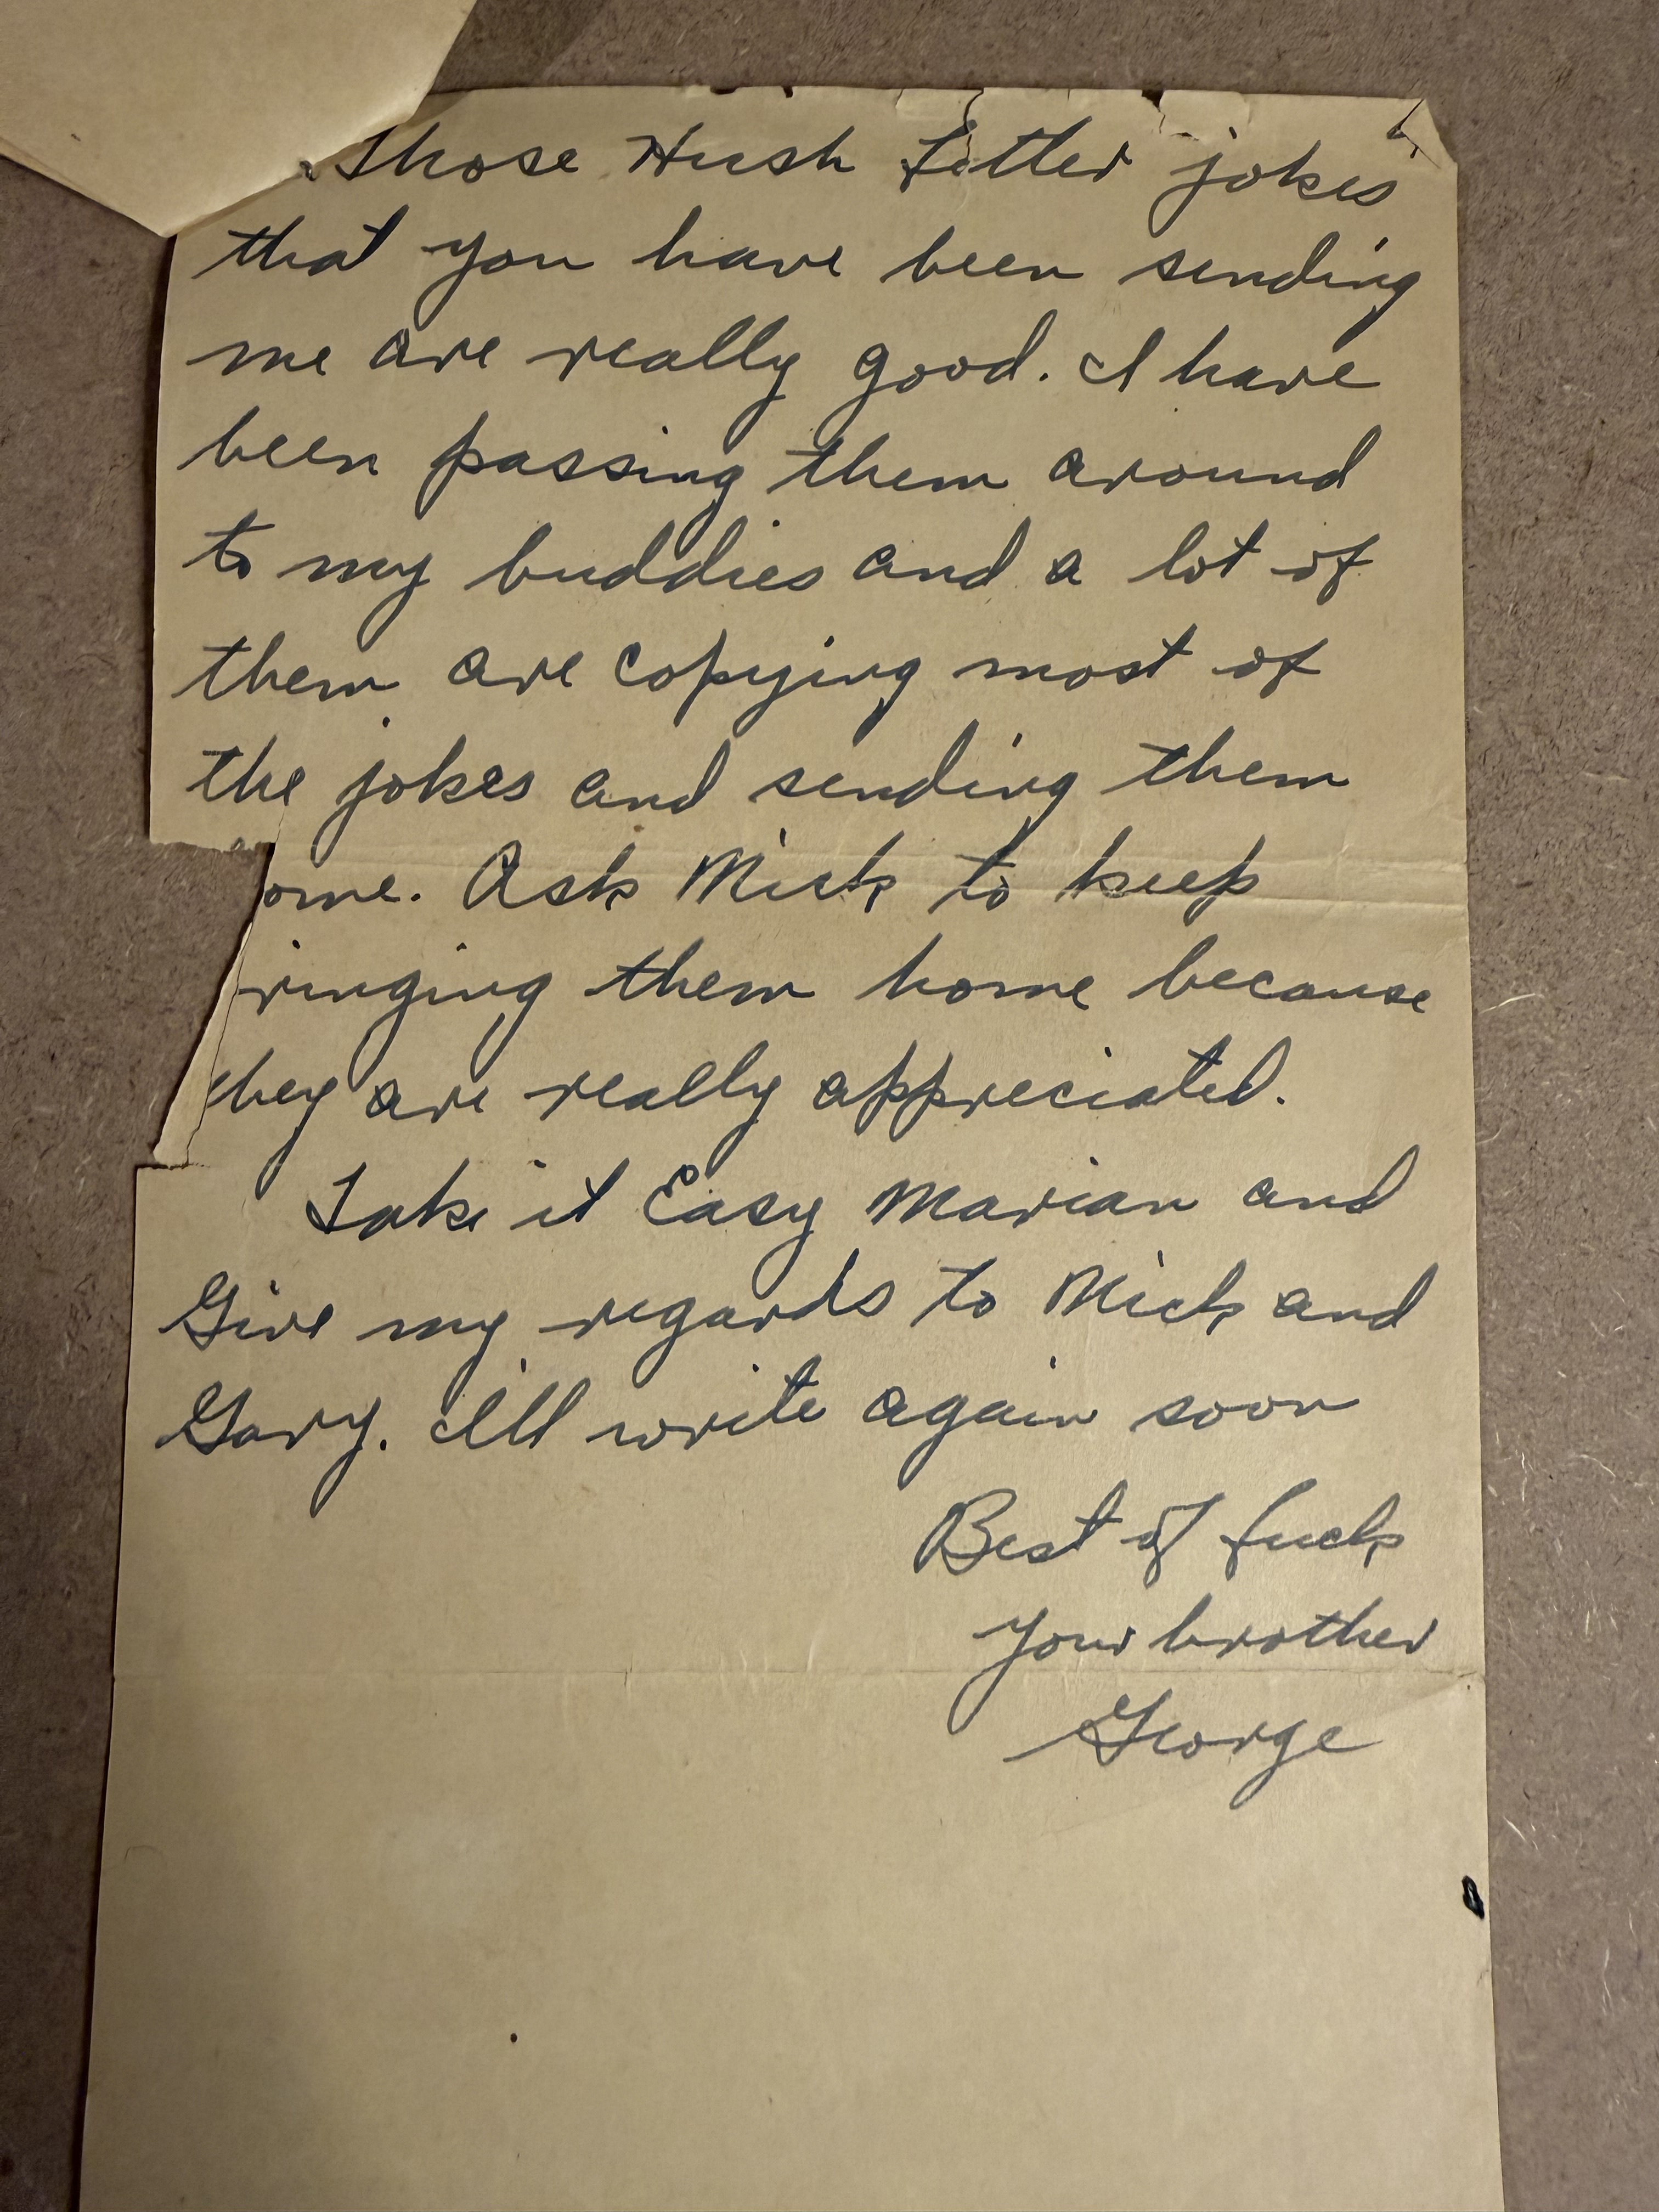 Those Hush Letter jokes
that you have been sending
me are really good. I have
been passing them around
to my buddies and a lot of
them are copying most of
the jokes and sending them
ome. Ask Mick to keep
ringing them home because
hey are really appreciated.
Take it Easy Marian and
Give my regards to Mick and
Gary. I'll write again soon
Best of luck
Your brother
George